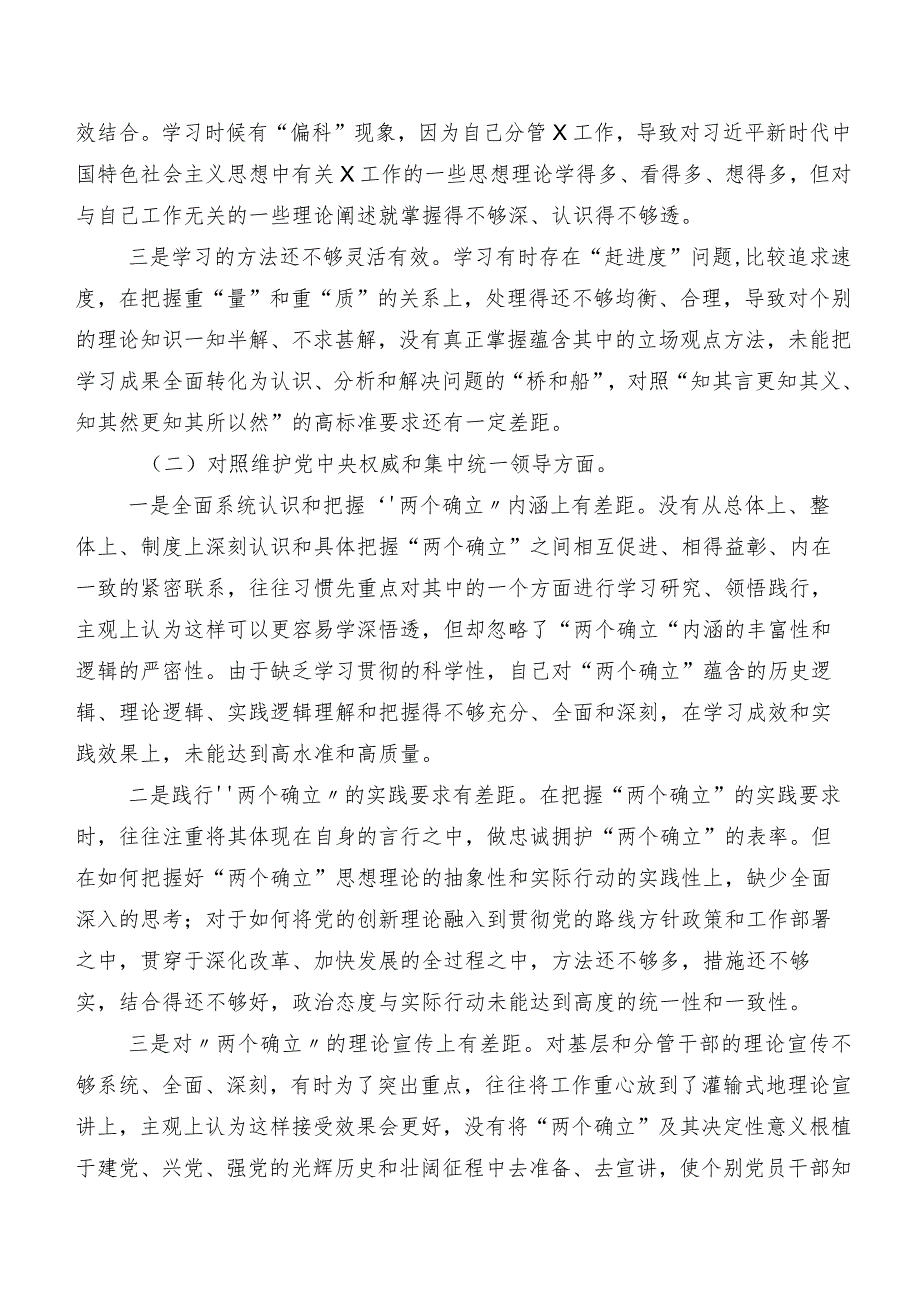 效结合。学习时候有“偏科”现象，因为自己分管X工作，导致对习近平新时代中
国特色社会主义思想中有关X工作的一些思想理论学得多、看得多、想得多，但对
与自己工作无关的一些理论阐述就掌握得不够深、认识得不够透。
三是学习的方法还不够灵活有效。学习有时存在“赶进度”问题,比较追求速
度，在把握重“量”和重“质”的关系上，处理得还不够均衡、合理，导致对个别
的理论知识一知半解、不求甚解，没有真正掌握蕴含其中的立场观点方法，未能把
学习成果全面转化为认识、分析和解决问题的“桥和船”，对照“知其言更知其义、
知其然更知其所以然”的高标准要求还有一定差距。
（二）对照维护党中央权威和集中统一领导方面。
一是全面系统认识和把握‘'两个确立〃内涵上有差距。没有从总体上、整
体上、制度上深刻认识和具体把握“两个确立”之间相互促进、相得益彰、内在
一致的紧密联系，往往习惯先重点对其中的一个方面进行学习研究、领悟践行，
主观上认为这样可以更容易学深悟透，但却忽略了“两个确立“内涵的丰富性和
逻辑的严密性。由于缺乏学习贯彻的科学性，自己对“两个确立”蕴含的历史逻
辑、理论逻辑、实践逻辑理解和把握得不够充分、全面和深刻，在学习成效和实
践效果上，未能达到高水准和高质量。
二是践行''两个确立〃的实践要求有差距。在把握“两个确立”的实践要求
时，往往注重将其体现在自身的言行之中，做忠诚拥护“两个确立”的表率。但
在如何把握好“两个确立”思想理论的抽象性和实际行动的实践性上，缺少全面
深入的思考；对于如何将党的创新理论融入到贯彻党的路线方针政策和工作部署
之中，贯穿于深化改革、加快发展的全过程之中，方法还不够多，措施还不够
实，结合得还不够好，政治态度与实际行动未能达到高度的统一性和一致性。
三是对〃两个确立〃的理论宣传上有差距。对基层和分管干部的理论宣传不
够系统、全面、深刻，有时为了突出重点，往往将工作重心放到了灌输式地理论宣
讲上，主观上认为这样接受效果会更好，没有将“两个确立”及其决定性意义根植
于建党、兴党、强党的光辉历史和壮阔征程中去准备、去宣讲，使个别党员干部知